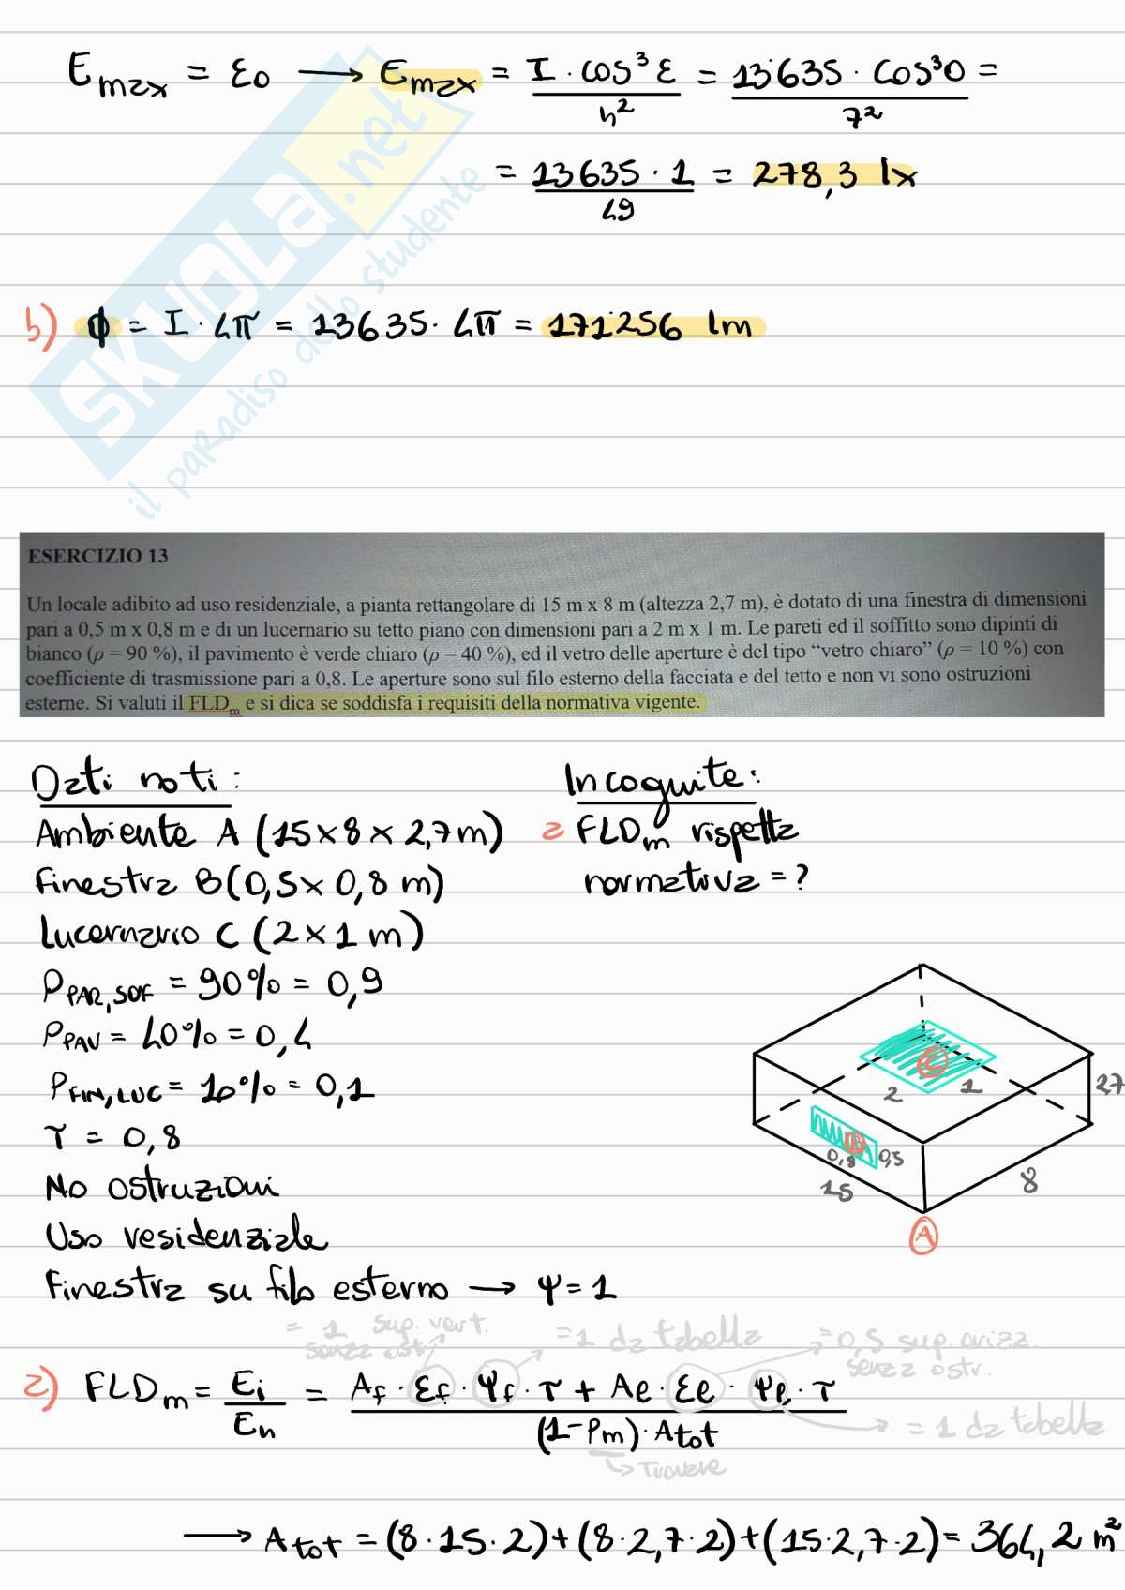 Emax = E0 → Emax = I · cos³ε / h² = 13635 · cos³0 / 7² =
= 13635 · 1 / 49 = 278,3 lx
b) ϕ = I · 4π = 13635 · 4π = 171256 lm
SKUOLA.net
il paradiso dello studente
ESERCIZIO 13
Un locale adibito ad uso residenziale, a pianta rettangolare di 15 m x 8 m (altezza 2,7 m), è dotato di una finestra di dimensioni
pari a 0,5 m x 0,8 m e di un lucernario su tetto piano con dimensioni pari a 2 m x 1 m. Le pareti ed il soffitto sono dipinti di
bianco (ρ = 90 %), il pavimento è verde chiaro (ρ – 40 %), ed il vetro delle aperture è del tipo “vetro chiaro” (ρ = 10 %) con
coefficiente di trasmissione pari a 0,8. Le aperture sono sul filo esterno della facciata e del tetto e non vi sono ostruzioni
esterne. Si valuti il FLDm e si dica se soddisfa i requisiti della normativa vigente.
Dati noti:
Ambiente A (15 x 8 x 2,7 m)
Finestra B (0,5 x 0,8 m)
Lucernario C (2 x 1 m)
ρPAR,SOF = 90% = 0,9
ρPAV = 40% = 0,4
ρFIN,LUC = 10% = 0,1
τ = 0,8
No ostruzioni
Uso residenziale
Finestra su filo esterno → ψ = 1
Incognite:
a FLDm rispetta
normativa = ?
C
2
1
2,7
B
0,8
0,5
15
8
A
= 1 sup. vert.
senza ostr.
= 1 da tabella
= 0,5 sup. orizz.
senza ostr.
a) FLDm = Ei / En = Af · εf · ψf · τ + Ae · εe · ψe · τ / (1-ρm) · Atot
= 1 da tabella
↳ Trovare
→ Atot = (8 · 15 · 2) + (8 · 2,7 · 2) + (15 · 2,7 · 2) = 364,2 m²